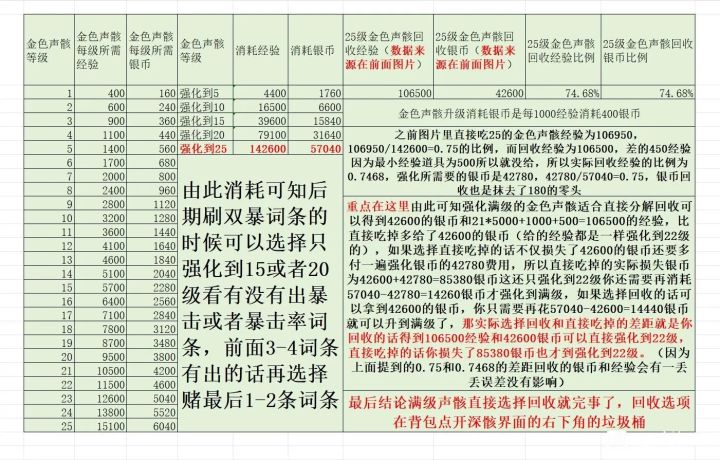 金色声骸等级 金色声骸每级所需经验 金色声骸每级所需银币 金色声骸等级 消耗经验 消耗银币 25级金色声骸回收经验（数据来源在前面图片） 25级金色声骸回收银币（数据来源在前面图片） 25级金色声骸回收经验比例 25级金色声骸回收银币比例
1 400 160 强化到5 4400 1760 106500 42600 74.68% 74.68%
2 600 240 强化到10 16500 6600
3 900 360 强化到15 39600 15840
4 1100 440 强化到20 79100 31640
5 1400 560 强化到25 142600 57040
6 1700 680
7 2000 800
8 2400 960
9 2800 1120
10 3200 1280
11 3600 1440
12 4100 1640
13 4600 1840
14 5100 2040
15 5700 2280
16 6400 2560
17 7100 2840
18 7800 3120
19 8700 3480
20 9500 3800
21 10500 4200
22 11500 4600
23 12600 5040
24 13800 5520
25 15100 6040
由此消耗可知后
期刷双暴词条的
时候可以选择只
强化到15或者20
级看有没有出暴
击或者暴击率词
条，前面3-4词条
有出的话再选择
赌最后1-2条词条
金色声骸升级消耗银币是每1000经验消耗400银币
之前图片里直接吃25的金色声骸经验为106950，
106950/142600=0.75的比例，而回收经验为106500，差的450经验
因为最小经验道具为500所以就没给，所以实际回收经验的比例为
0.7468，强化所需要的银币是42780，42780/57040=0.75，银币回
收也是抹去了180的零头
重点在这里由此可知强化满级的金色声骸适合直接分解回收可
以得到42600的银币和21*5000+1000+500=106500的经验，比
直接吃掉多给了42600的银币（给的经验都是一样强化到22级
的），如果选择直接吃掉的话不仅损失了42600的银币还要多
付一遍强化银币的42780费用，所以直接吃掉的实际损失银币
为42600+42780=85380银币这还只强化到22级你还需要再消耗
57040-42780=14260银币才强化到满级，如果选择回收的话可
以拿到42600的银币，你只需要再花57040-42600=14440银币
就可以升到满级了，那实际选择回收和直接吃掉的差距就是你
回收的话得到106500经验和42600银币可以直接强化到22级，
直接吃掉的话你损失了85380银币也才到强化到22级。（因为
上面提到的0.75和0.7468的差距回收的银币和经验会有一丢
丢误差没有影响）
最后结论满级声骸直接选择回收就完事了，回收选项
在背包点开深骸界面的右下角的垃圾桶